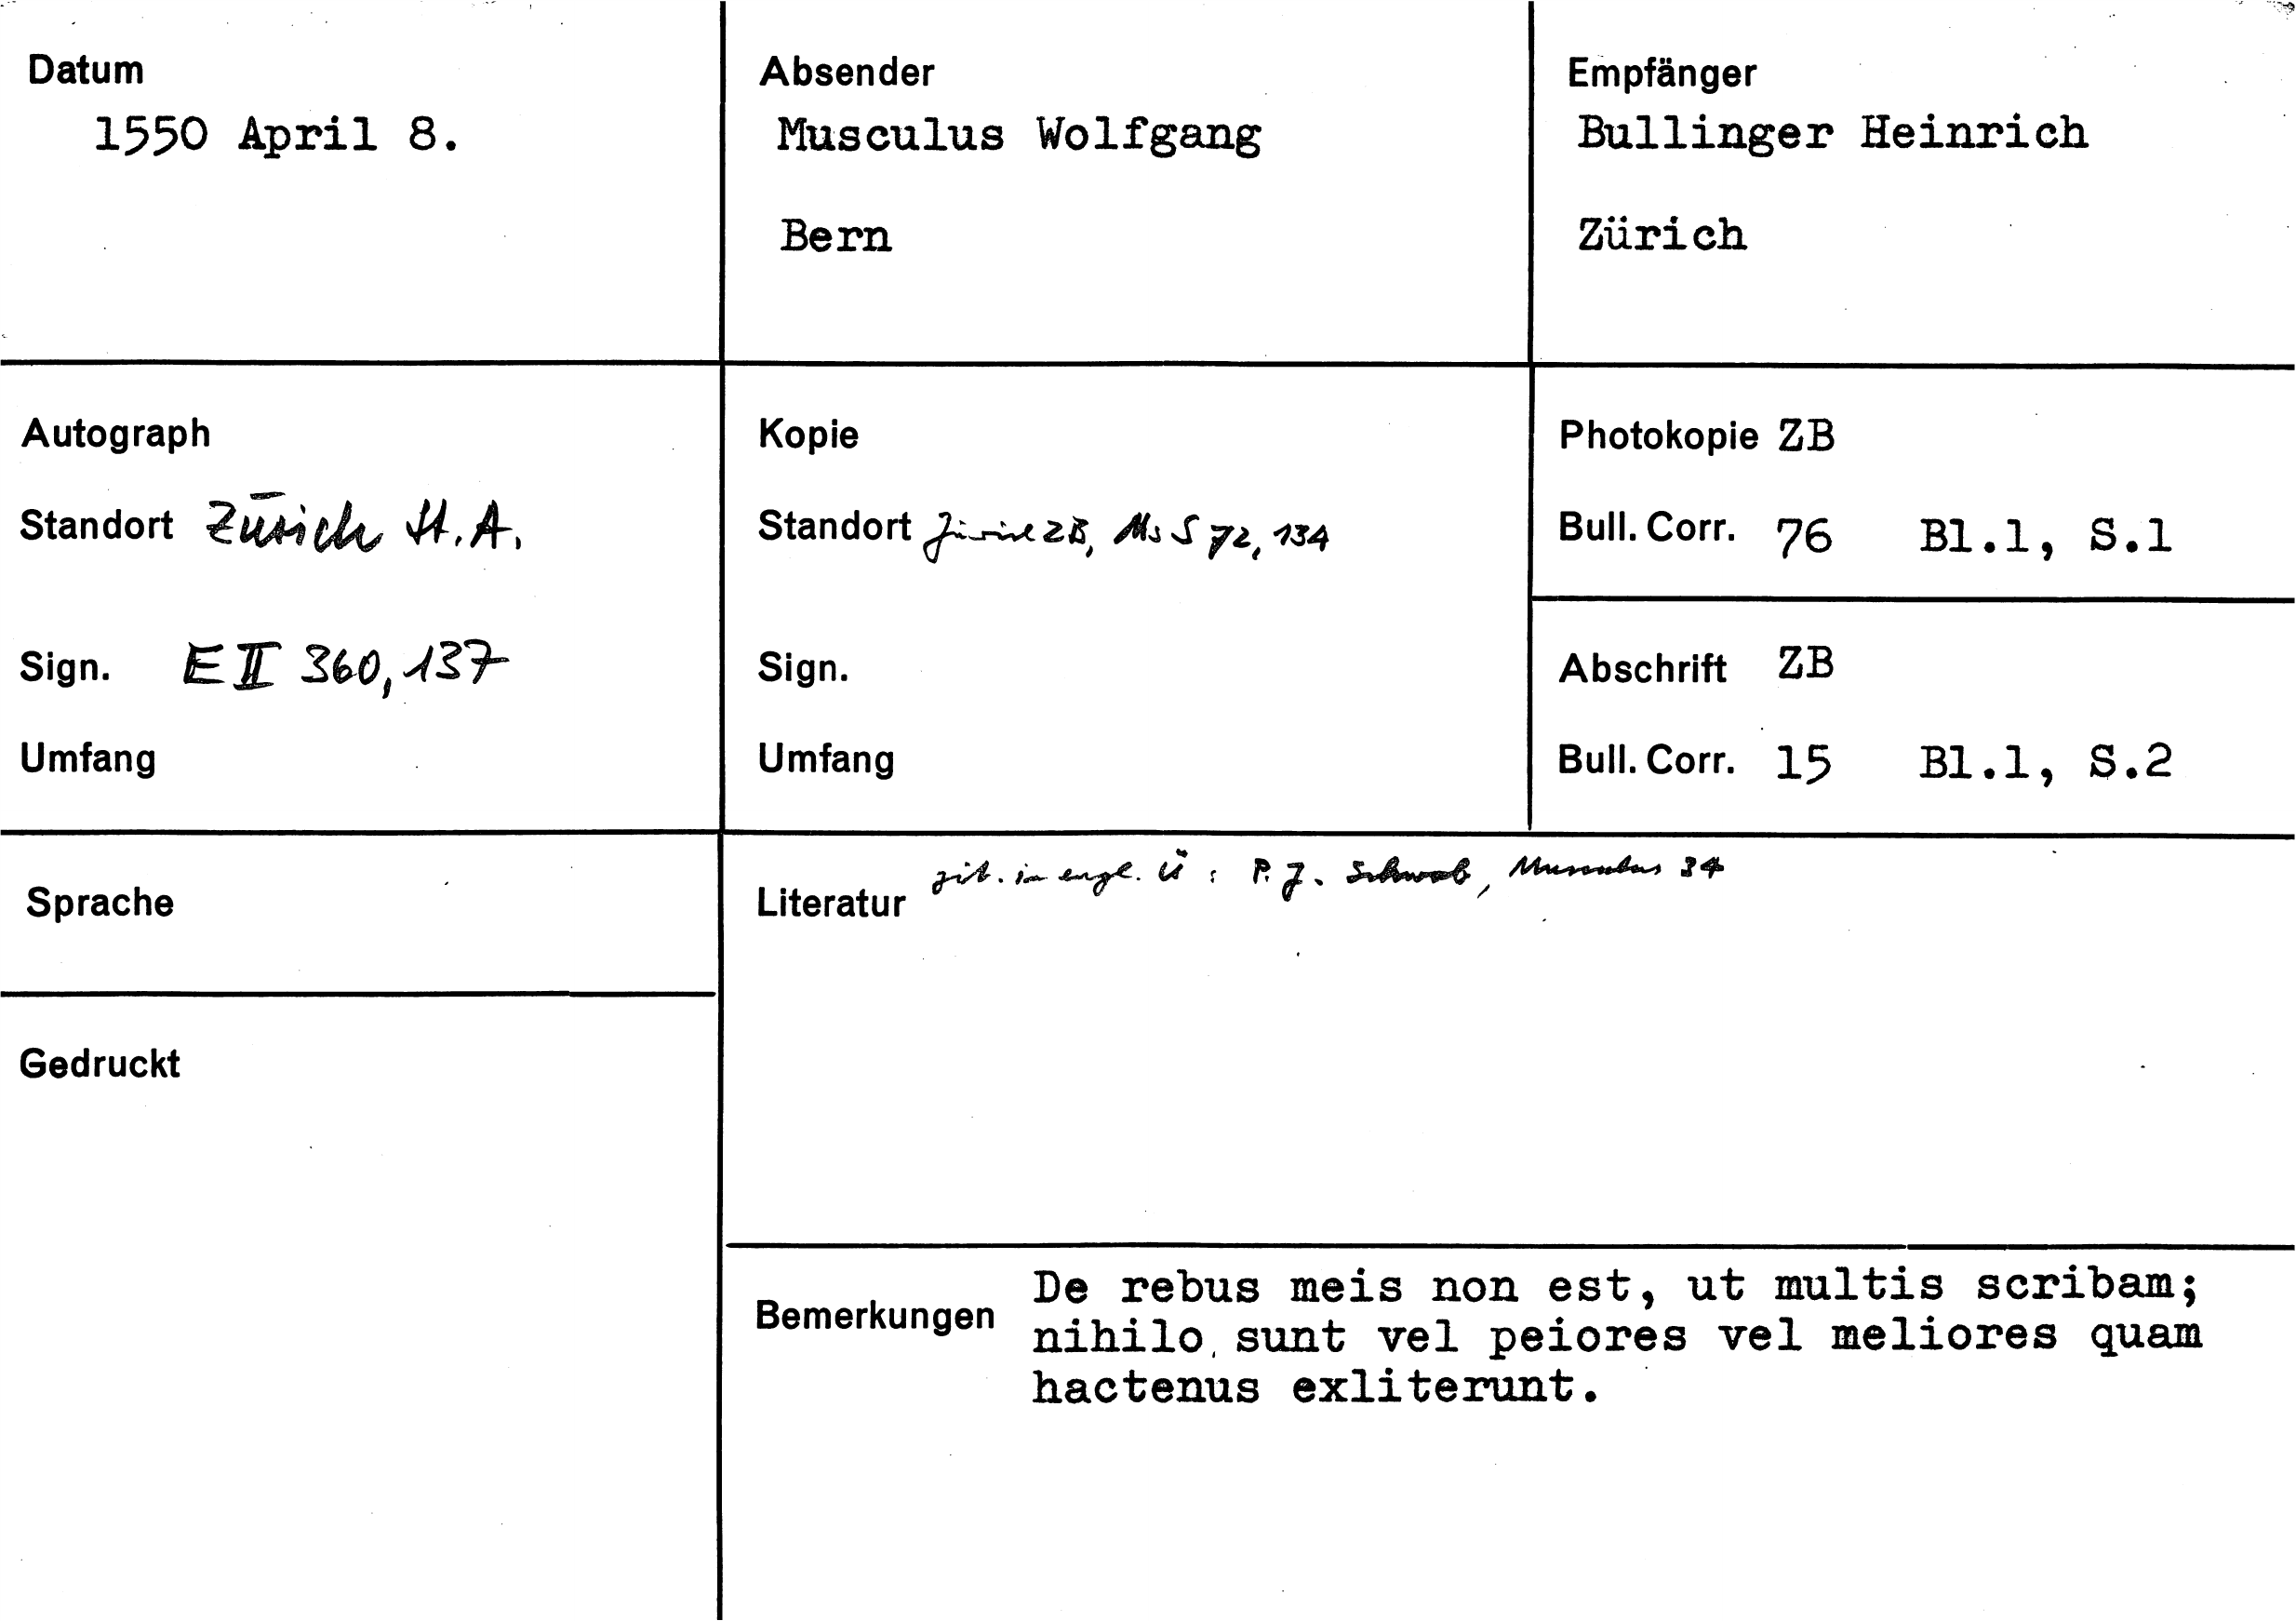 Datum
1550 April 8.
Absender
Musculus Wolfgang
Bern
Empfänger
Bullinger Heinrich
Zürich
Autograph
Standort Zürich St.A.
Sign. E II 360, 137
Umfang
Kopie
Standort Zürich ZB, Ms S 72, 134
Sign.
Umfang
Photokopie ZB
Bull. Corr. 76 Bl.1, S.1
Abschrift ZB
Bull. Corr. 15 Bl.1, S.2
Sprache
Gedruckt
Literatur zit. in engl. Ü: P. J. Schwab, Musculus 34
Bemerkungen
De rebus meis non est, ut multis scribam;
nihilo sunt vel peiores vel meliores quam
hactenus exliterunt.